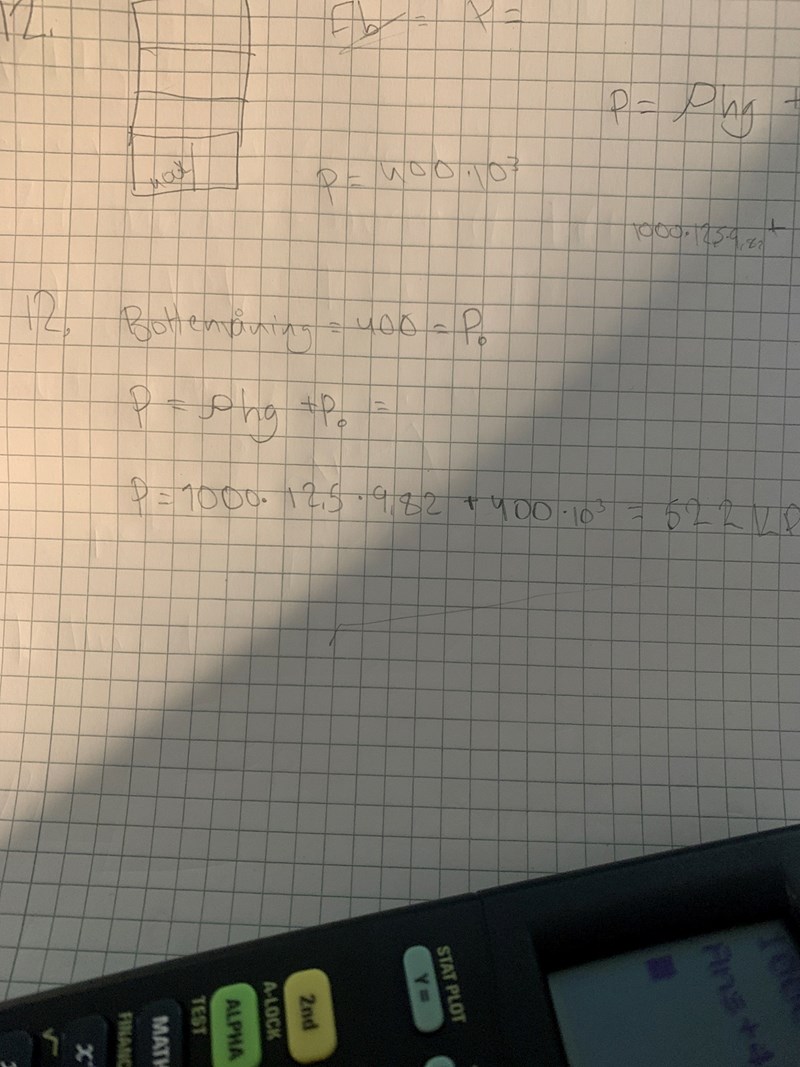 12.
P = ρhg +
P = 400·10³
1000·12,5·9,82 +
12. Bottenvåning = 400 = P₀
P = ρhg + P₀ =
P = 1000·12,5·9,82 + 400·10³ = 522 kP
STAT PLOT
Y=
2nd
A-LOCK
ALPHA
TEST
MATH
FINANC
√
X